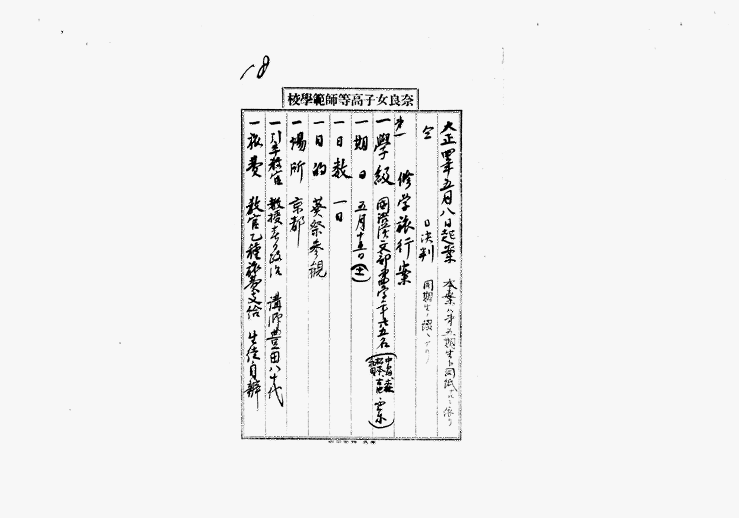 18
奈良女子高等師範學校
大正四年五月八日起案
本案ハ第五期生ト同紙ナルニ依リ
仝 日決判
同期生ノ
第一 修学旅行案
一學級 国語漢文部
一期日 五月十五日(土)
一日數 一日
一目的 葵祭参観
一場所 京都
一引率教官 教授 講師豊田八十代
一旅費 教官乙種旅費支給 生徒自辨